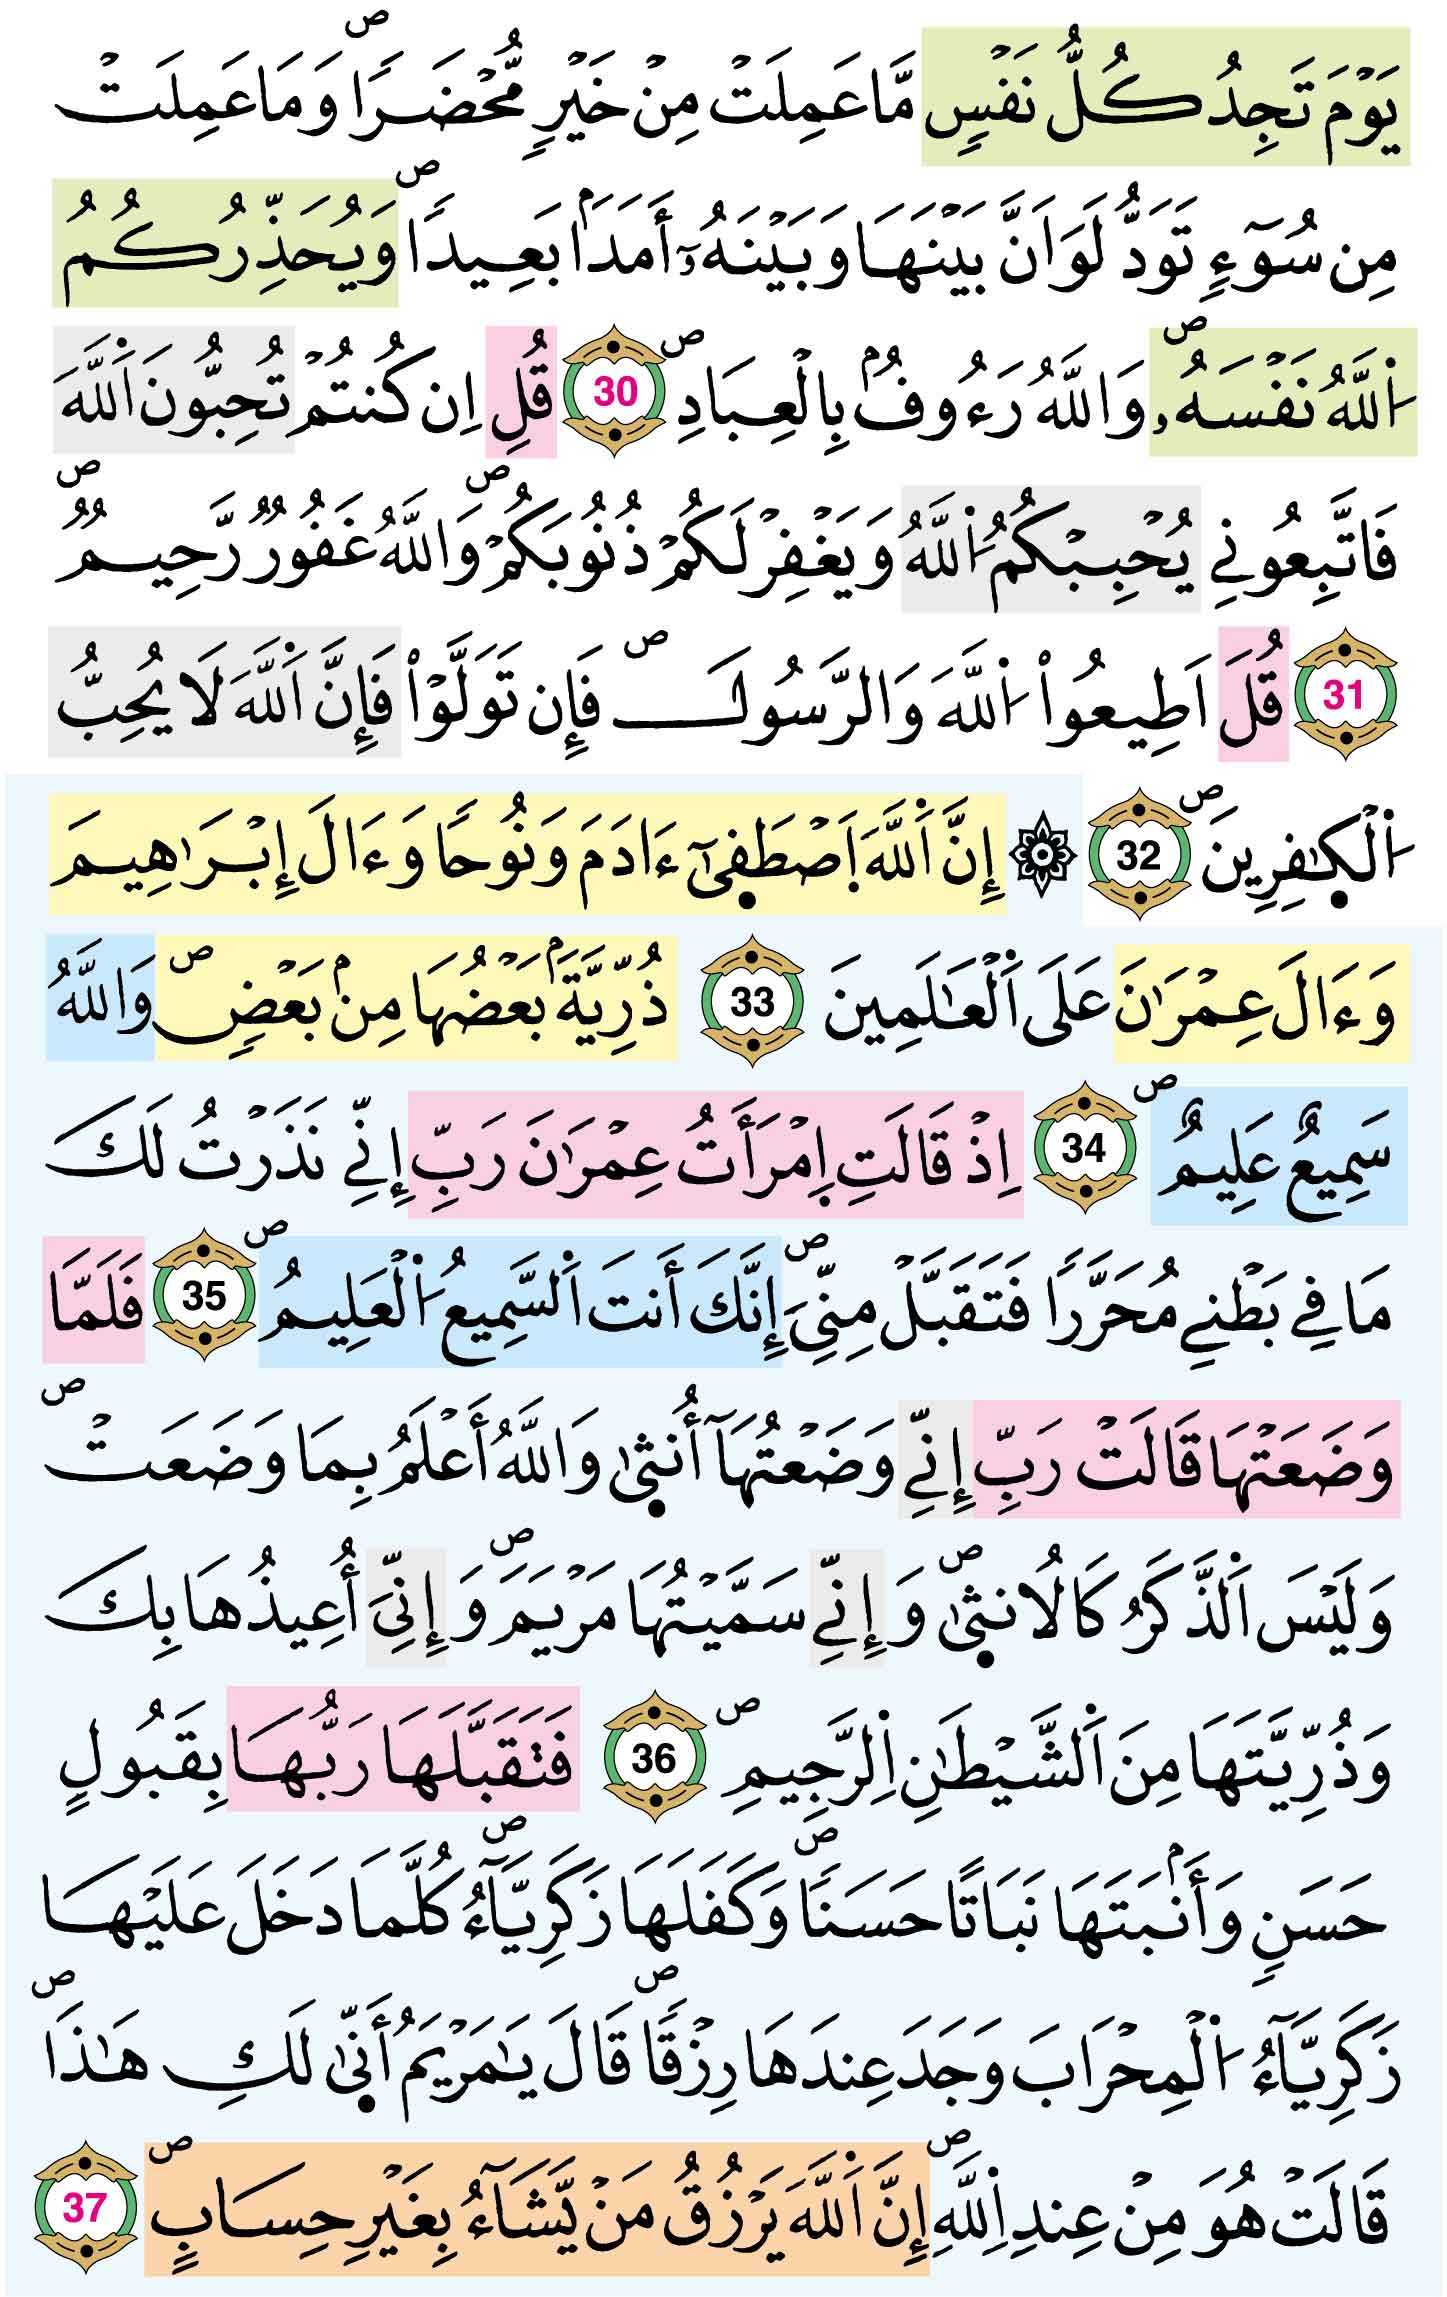 يَوْمَ تَجِدُ كُلُّ نَفْسٖ مَّا عَمِلَتْ مِنْ خَيْرٖ مُّحْضَراٗۖ وَمَا عَمِلَتْ
مِن سُوٓءٖ تَوَدُّ لَوَ اَنَّ بَيْنَهَا وَبَيْنَهُۥٓ أَمَدَاۢ بَعِيداٗۖ وَيُحَذِّرُكُمُ
اُ۬للَّهُ نَفْسَهُۥۖ وَاللَّهُ رَءُوفُۢ بِالْعِبَادِۖ 30 قُلِ اِن كُنتُمْ تُحِبُّونَ اَ۬للَّهَ
فَاتَّبِعُونِے يُحْبِبْكُمُ اُ۬للَّهُ وَيَغْفِرْ لَكُمْ ذُنُوبَكُمْۖ وَاللَّهُ غَفُورٞ رَّحِيمٞۖ
31 قُلَ اَطِيعُواْ اُ۬للَّهَ وَالرَّسُولَۖ فَإِن تَوَلَّوْاْ فَإِنَّ اَ۬للَّهَ لَا يُحِبُّ
اُ۬لْكٰ۪فِرِينَۖ 32 ۞ إِنَّ اَ۬للَّهَ اَ۪صْطَف۪ىٰٓ ءَادَمَ وَنُوحاٗ وَءَالَ إِبْرَٰهِيمَ
وَءَالَ عِمْرَٰنَ عَلَى اَ۬لْعَٰلَمِينَ 33 ذُرِّيَّةَۢ بَعْضُهَا مِنۢ بَعْضٖۖ وَاللَّهُ
سَمِيعٌ عَلِيمٌۖ 34 اِذْ قَالَتِ اِ۪مْرَأَتُ عِمْرَٰنَ رَبِّ إِنِّے نَذَرْتُ لَكَ
مَا فِے بَطْنِے مُحَرَّراٗ فَتَقَبَّلْ مِنِّيَۖ إِنَّكَ أَنتَ اَ۬لسَّمِيعُ اُ۬لْعَلِيمُۖ 35 فَلَمَّا
وَضَعَتْهَا قَالَتْ رَبِّ إِنِّے وَضَعْتُهَآ أُنث۪ىٰ وَاللَّهُ أَعْلَمُ بِمَا وَضَعَتْۖ
وَلَيْسَ اَ۬لذَّكَرُ كَالُانث۪ىٰۖ وَإِنِّے سَمَّيْتُهَا مَرْيَمَۖ وَإِنِّيَ أُعِيذُهَا بِكَ
وَذُرِّيَّتَهَا مِنَ اَ۬لشَّيْطَٰنِ اِ۬لرَّجِيمِۖ 36 فَتَقَبَّلَهَا رَبُّهَا بِقَبُولٍ
حَسَنٖ وَأَنۢبَتَهَا نَبَاتاً حَسَناٗۖ وَكَفَلَهَا زَكَرِيَّآءُۖ كُلَّمَا دَخَلَ عَلَيْهَا
زَكَرِيَّآءُ اُ۬لْمِحْرَابَ وَجَدَ عِندَهَا رِزْقاٗۖ قَالَ يَٰمَرْيَمُ أَنّ۪ىٰ لَكِ هَٰذَاۖ
قَالَتْ هُوَ مِنْ عِندِ اِ۬للَّهِۖ إِنَّ اَ۬للَّهَ يَرْزُقُ مَنْ يَّشَآءُ بِغَيْرِ حِسَابٍۖ 37